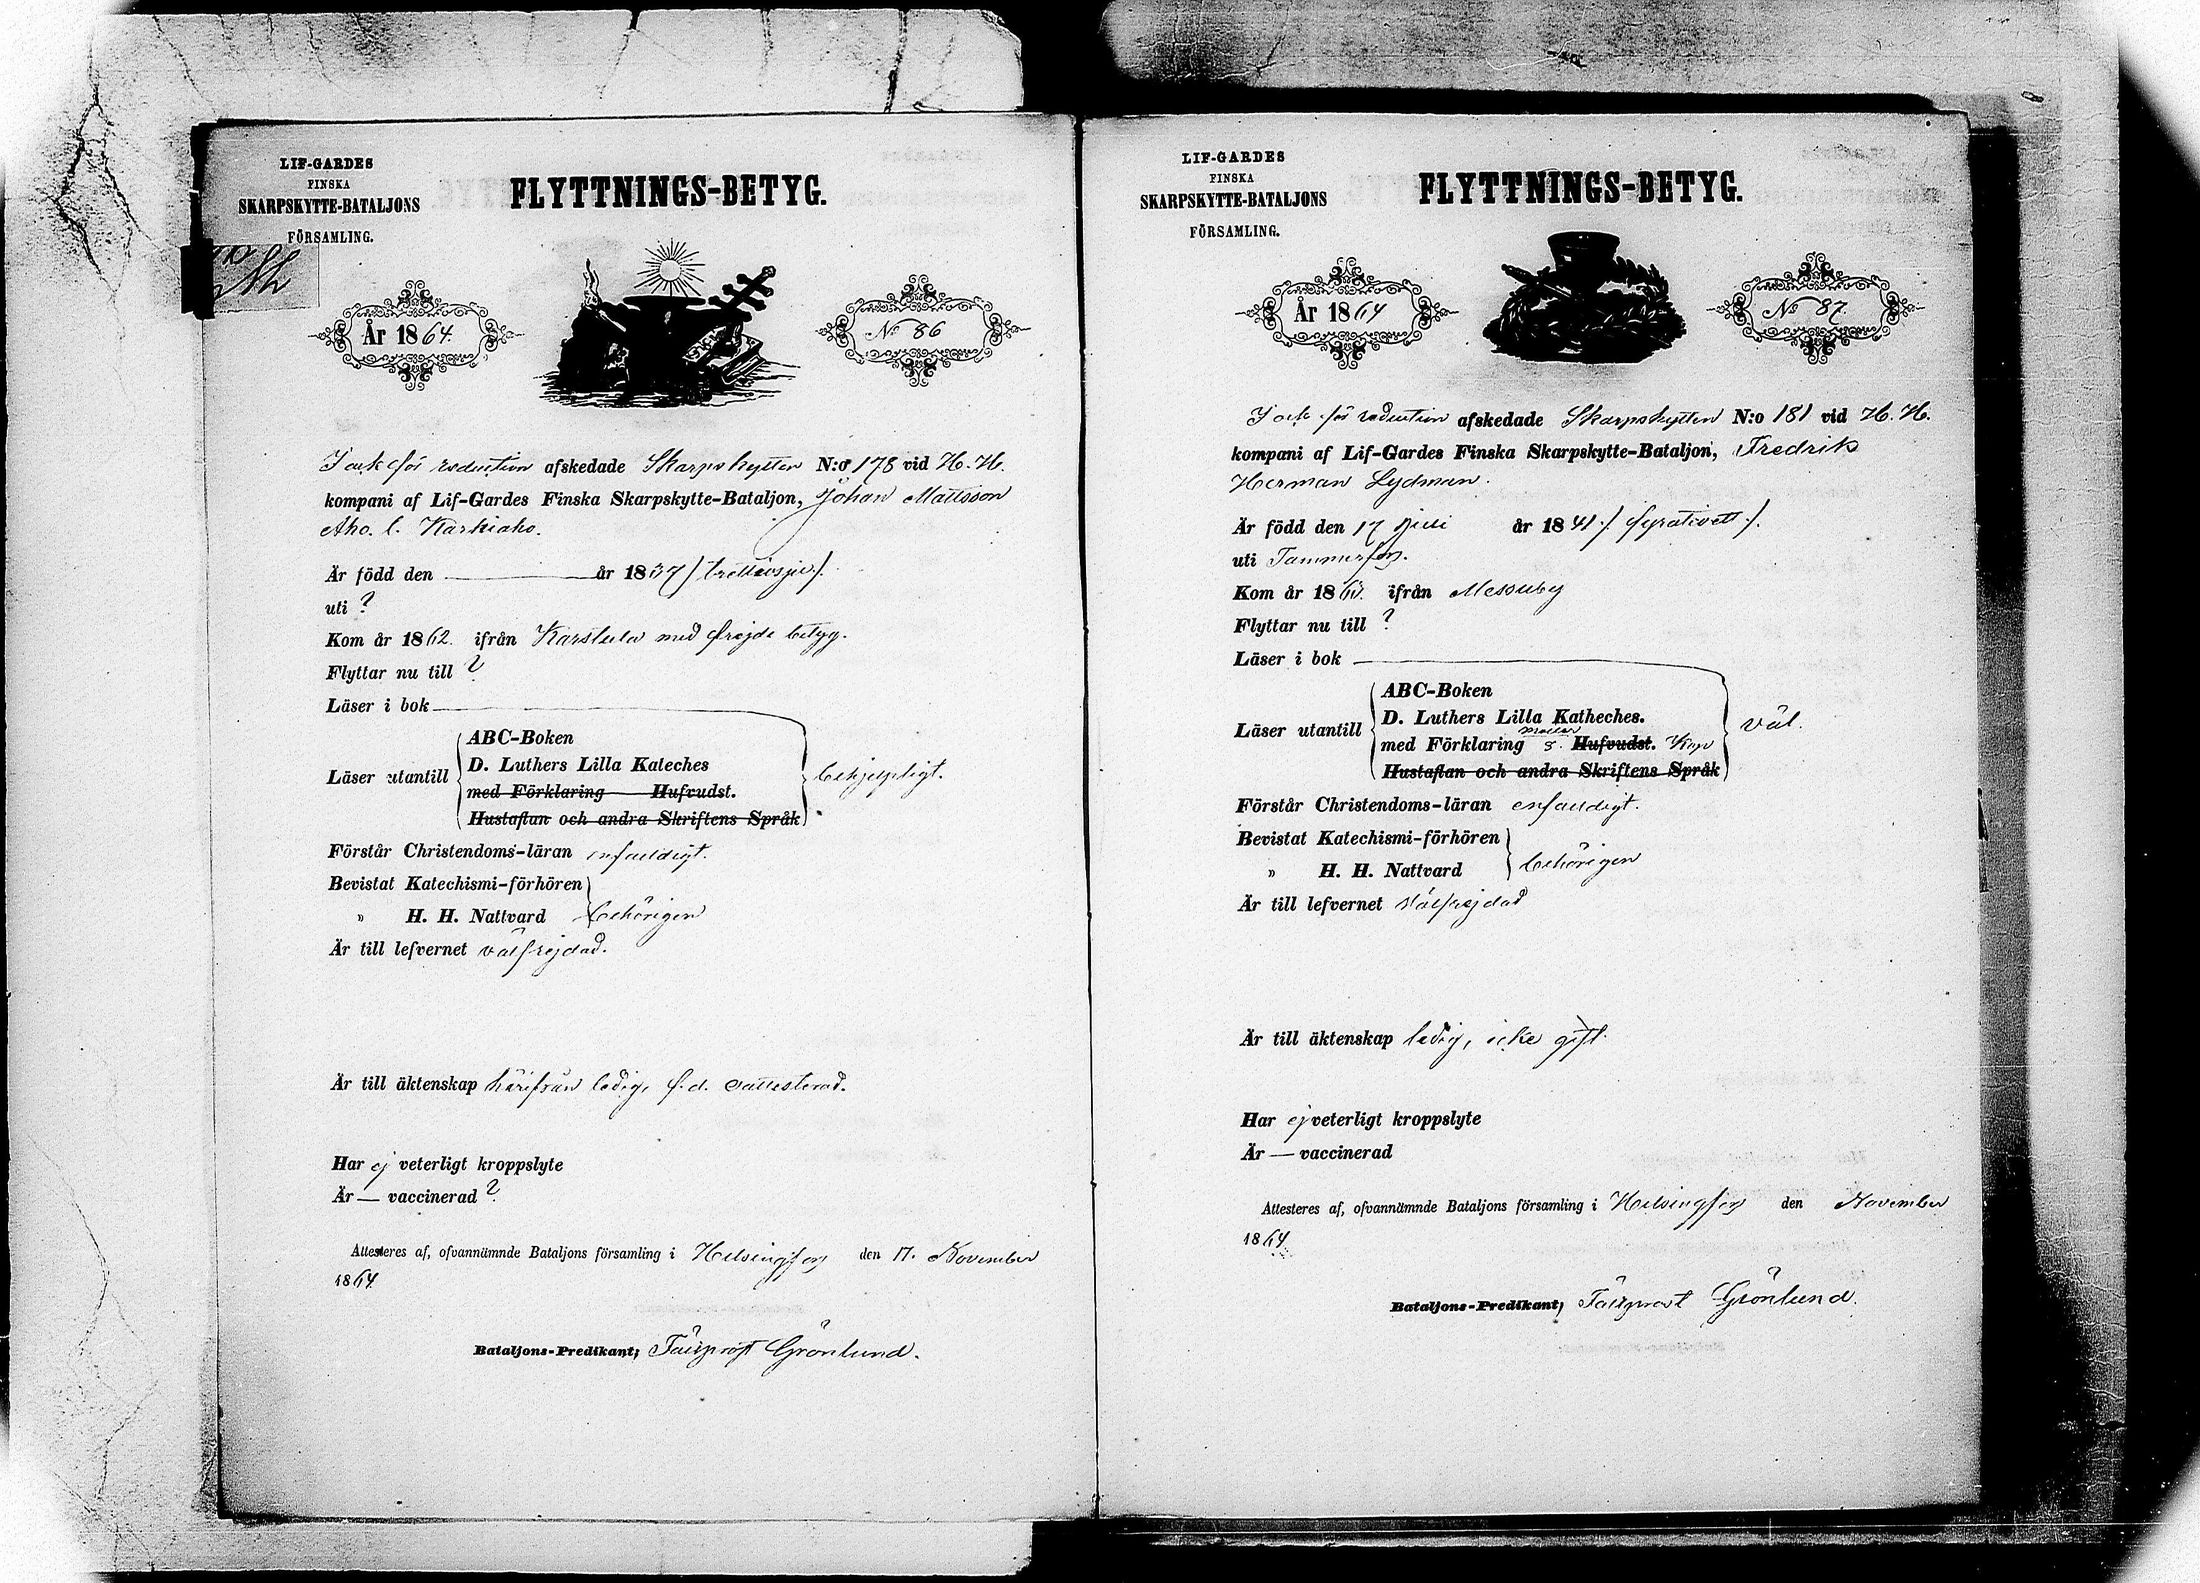 LIF-GARDES
FINSKA
SKARPSKYTTE-BATALJONS
FÖRSAMLING.
FLYTTNINGS-BETYG.
År 1864.
No 86
I och för reduction afskedade Skarpskytten N:o 178 vid H. H.
kompani af Lif-Gardes Finska Skarpskytte-Bataljon, Johan Mattsson
Aho. l. Karkiaho.
Är född den år 1837 /: trettiosju :/.
uti ?
Kom år 1862. ifrån Karstula med frejde betyg.
Flyttar nu till ?
Läser i bok
Läser utantill
ABC-Boken
D. Luthers Lilla Kateches
med Förklaring Hufvudst.
Hustaflan och andra Skriftens Språk
behjelpligt.
Förstår Christendoms-läran enfaldigt.
Bevistat Katechismi-förhören
" H. H. Nattvard behörigen
Är till lefvernet välfrejdad.
Är till äktenskap härifrån ledig, f. d. oattesterad.
Har ej veterligt kroppslyte
Är — vaccinerad ?
Attesteres af, ofvannämnde Bataljons församling i Helsingfors den 17. November
1864
Bataljons-Predikant, Fältprost Grönlund.
LIF-GARDES
FINSKA
SKARPSKYTTE-BATALJONS
FÖRSAMLING.
FLYTTNINGS-BETYG.
År 1864
No 87.
I och för reduction afskedade Skarpskytten N:o 181 vid H. H.
kompani af Lif-Gardes Finska Skarpskytte-Bataljon, Fredrik
Herman Lydman.
Är född den 17 Juli år 1841 /: fyratioett :/.
uti Tammerfors.
Kom år 186 ifrån Messuby
Flyttar nu till ?
Läser i bok
Läser utantill
ABC-Boken
D. Luthers Lilla Katheches.
med Förklaring 3. Hufvudst. Kap
Hustaflan och andra Skriftens Språk
väl.
Förstår Christendoms-läran enfaldigt.
Bevistat Katechismi-förhören
" H. H. Nattvard
behörigen
Är till lefvernet välfrejdad
Är till äktenskap ledig, icke gift.
Har ej veterligt kroppslyte
Är — vaccinerad
Attesteres af, ofvannämnde Bataljons församling i Helsingfors den November
1864.
Bataljons-Predikant, Fältprost Grönlund.